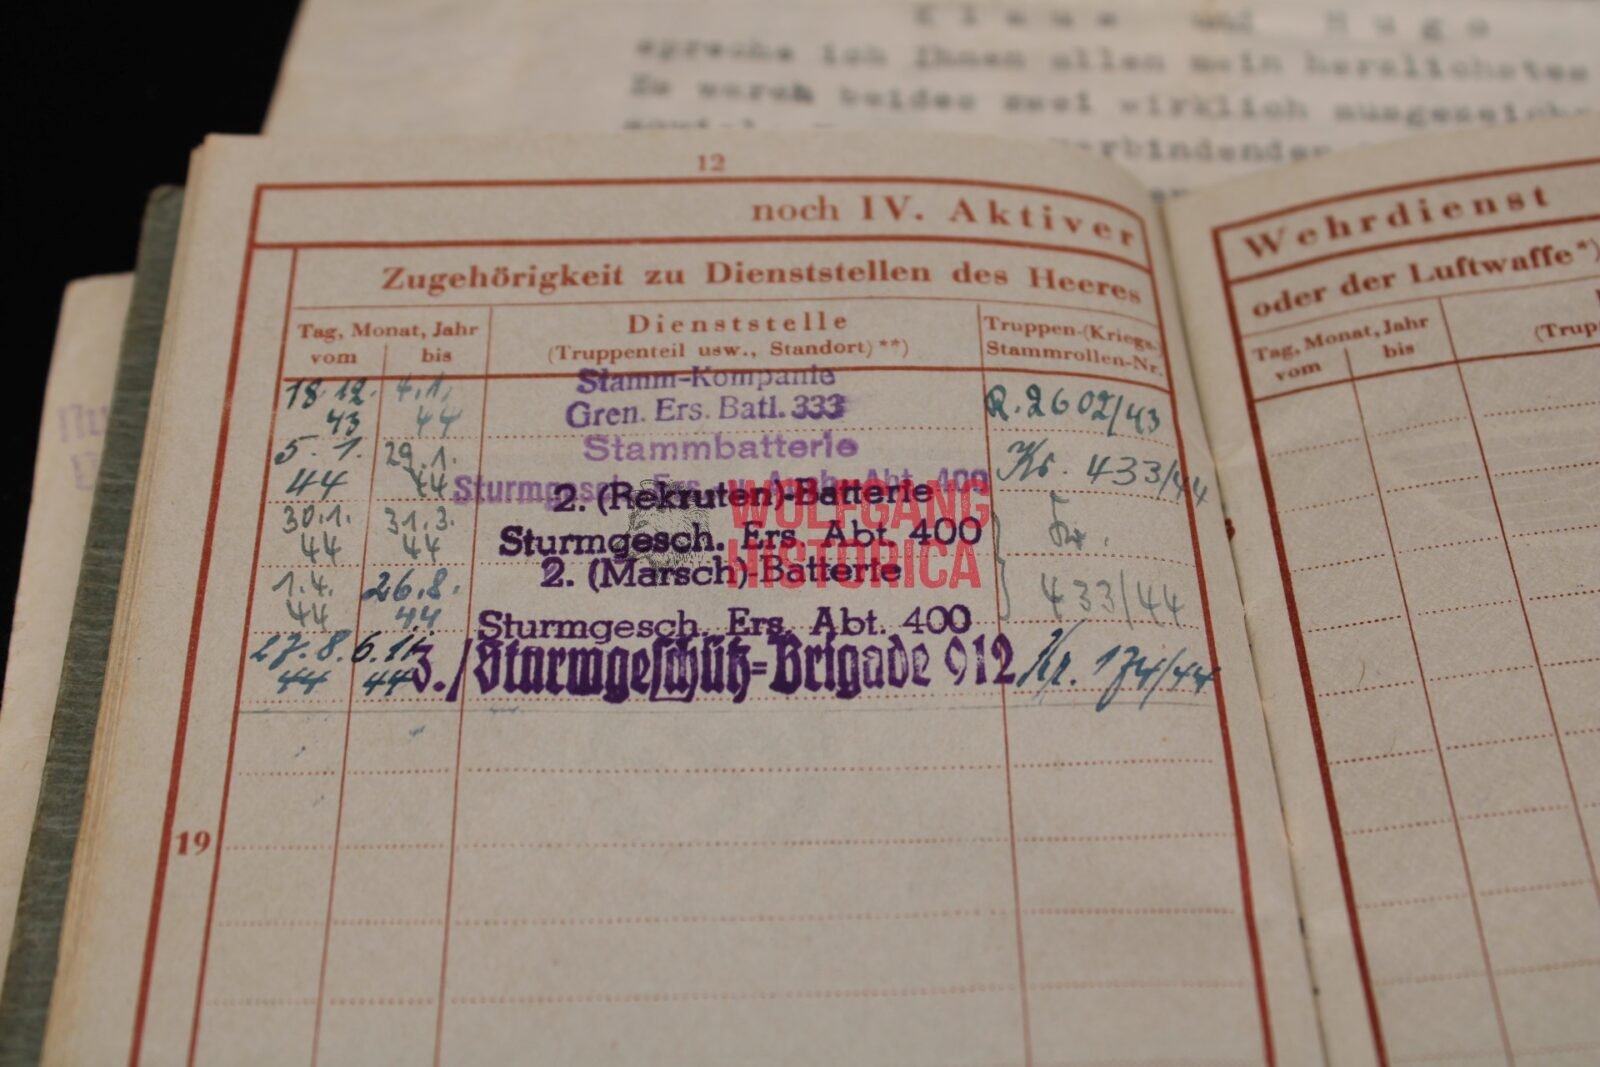 K l a u s und H u g o
spreche ich Ihnen allen mein herzlichstes
Es waren beides zwei wirklich ausgezeich
erbindender
12
noch IV. Aktiver
Zugehörigkeit zu Dienststellen des Heeres
Tag, Monat, Jahr
vom bis
Dienststelle
(Truppenteil usw., Standort)**)
Truppen-(Kriegs-)
Stammrollen-Nr.
18.12. 43 4.1. 44 Stamm-Kompanie
Gren. Ers. Batl. 333 R. 2602/43
5. 1. 44 29.1. 44 Stammbatterie
Sturmgesch. Ers. Ausb. Abt. 400 Kr. 433/44
30.1. 44 31.3. 44 2. (Rekruten)-Batterie
Sturmgesch. Ers. Abt. 400
1.4. 44 26.8. 44 2. (Marsch)-Batterie
Sturmgesch. Ers. Abt. 400
Kr. 433/44
27.8. 44 6.11. 44 3./Sturmgeschütz-Brigade 912 Kr. 174/44
19
Wehrdienst
oder der Luftwaffe*)
Tag, Monat, Jahr
vom bis
(Trup
WOLFGANG
HISTORICA